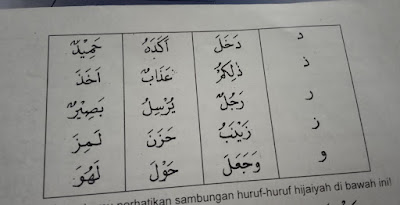 د دَخَلَ أَكَدَهُ حَمِيْدٌ
ذ ذٰلِكُمْ عَذَابٌ أَخَذَ
ر رَجُلٌ يُرْسِلُ بَصِيْرٌ
ز زَيْنَبُ حَزَنَ لَمِزَ
و وَجَعَلَ حَوْلَ لَهُوَ
perhatikan sambungan huruf-huruf hijaiyah di bawah ini!